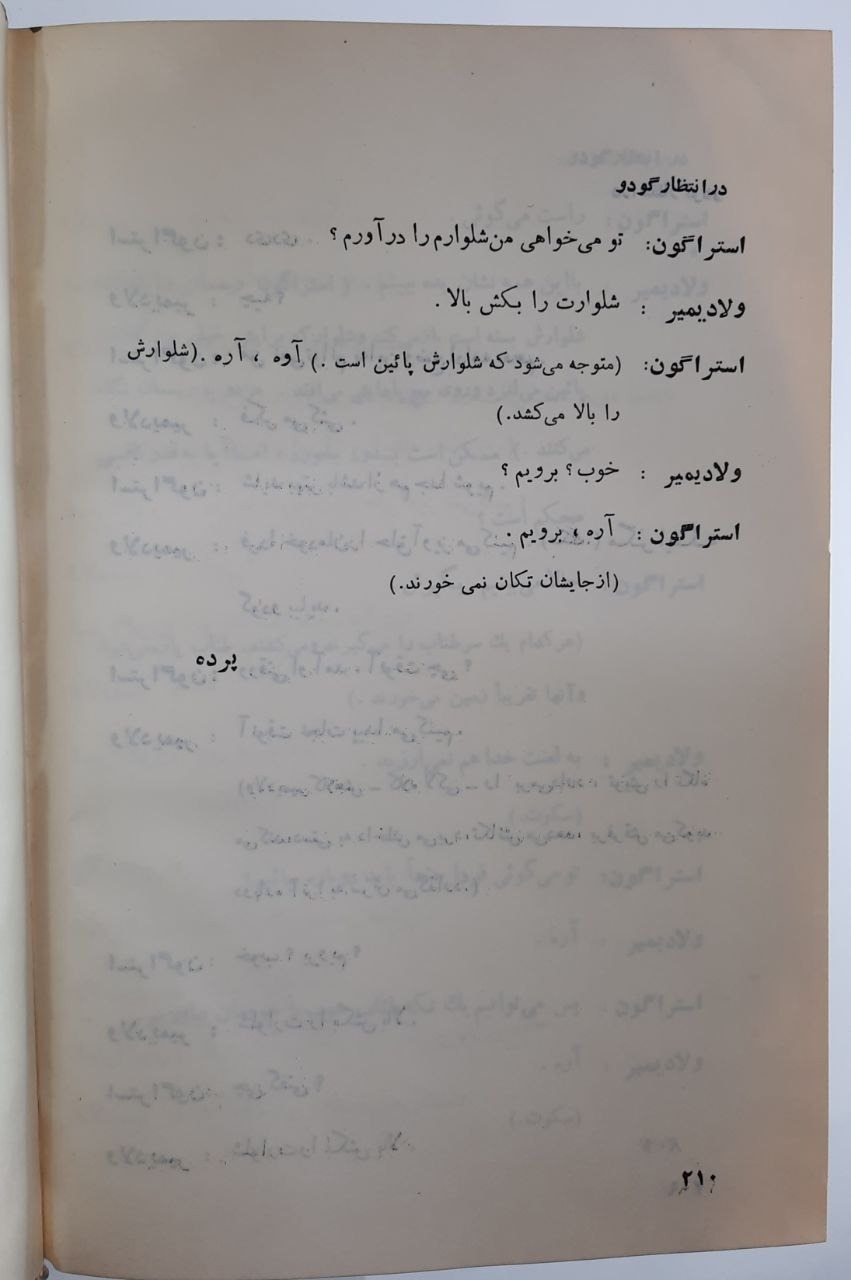 در انتظار گودو
استراگون: تو می‌خواهی من شلوارم را درآورم؟
ولادیمیر : شلوارت را بکش بالا.
استراگون: (متوجه می‌شود که شلوارش پائین است.) آوه، آره. (شلوارش
را بالا می‌کشد.)
ولادیمیر : خوب؟ برویم؟
استراگون: آره، برویم.
(ازجایشان تکان نمی خورند.)
پرده
۲۱۰